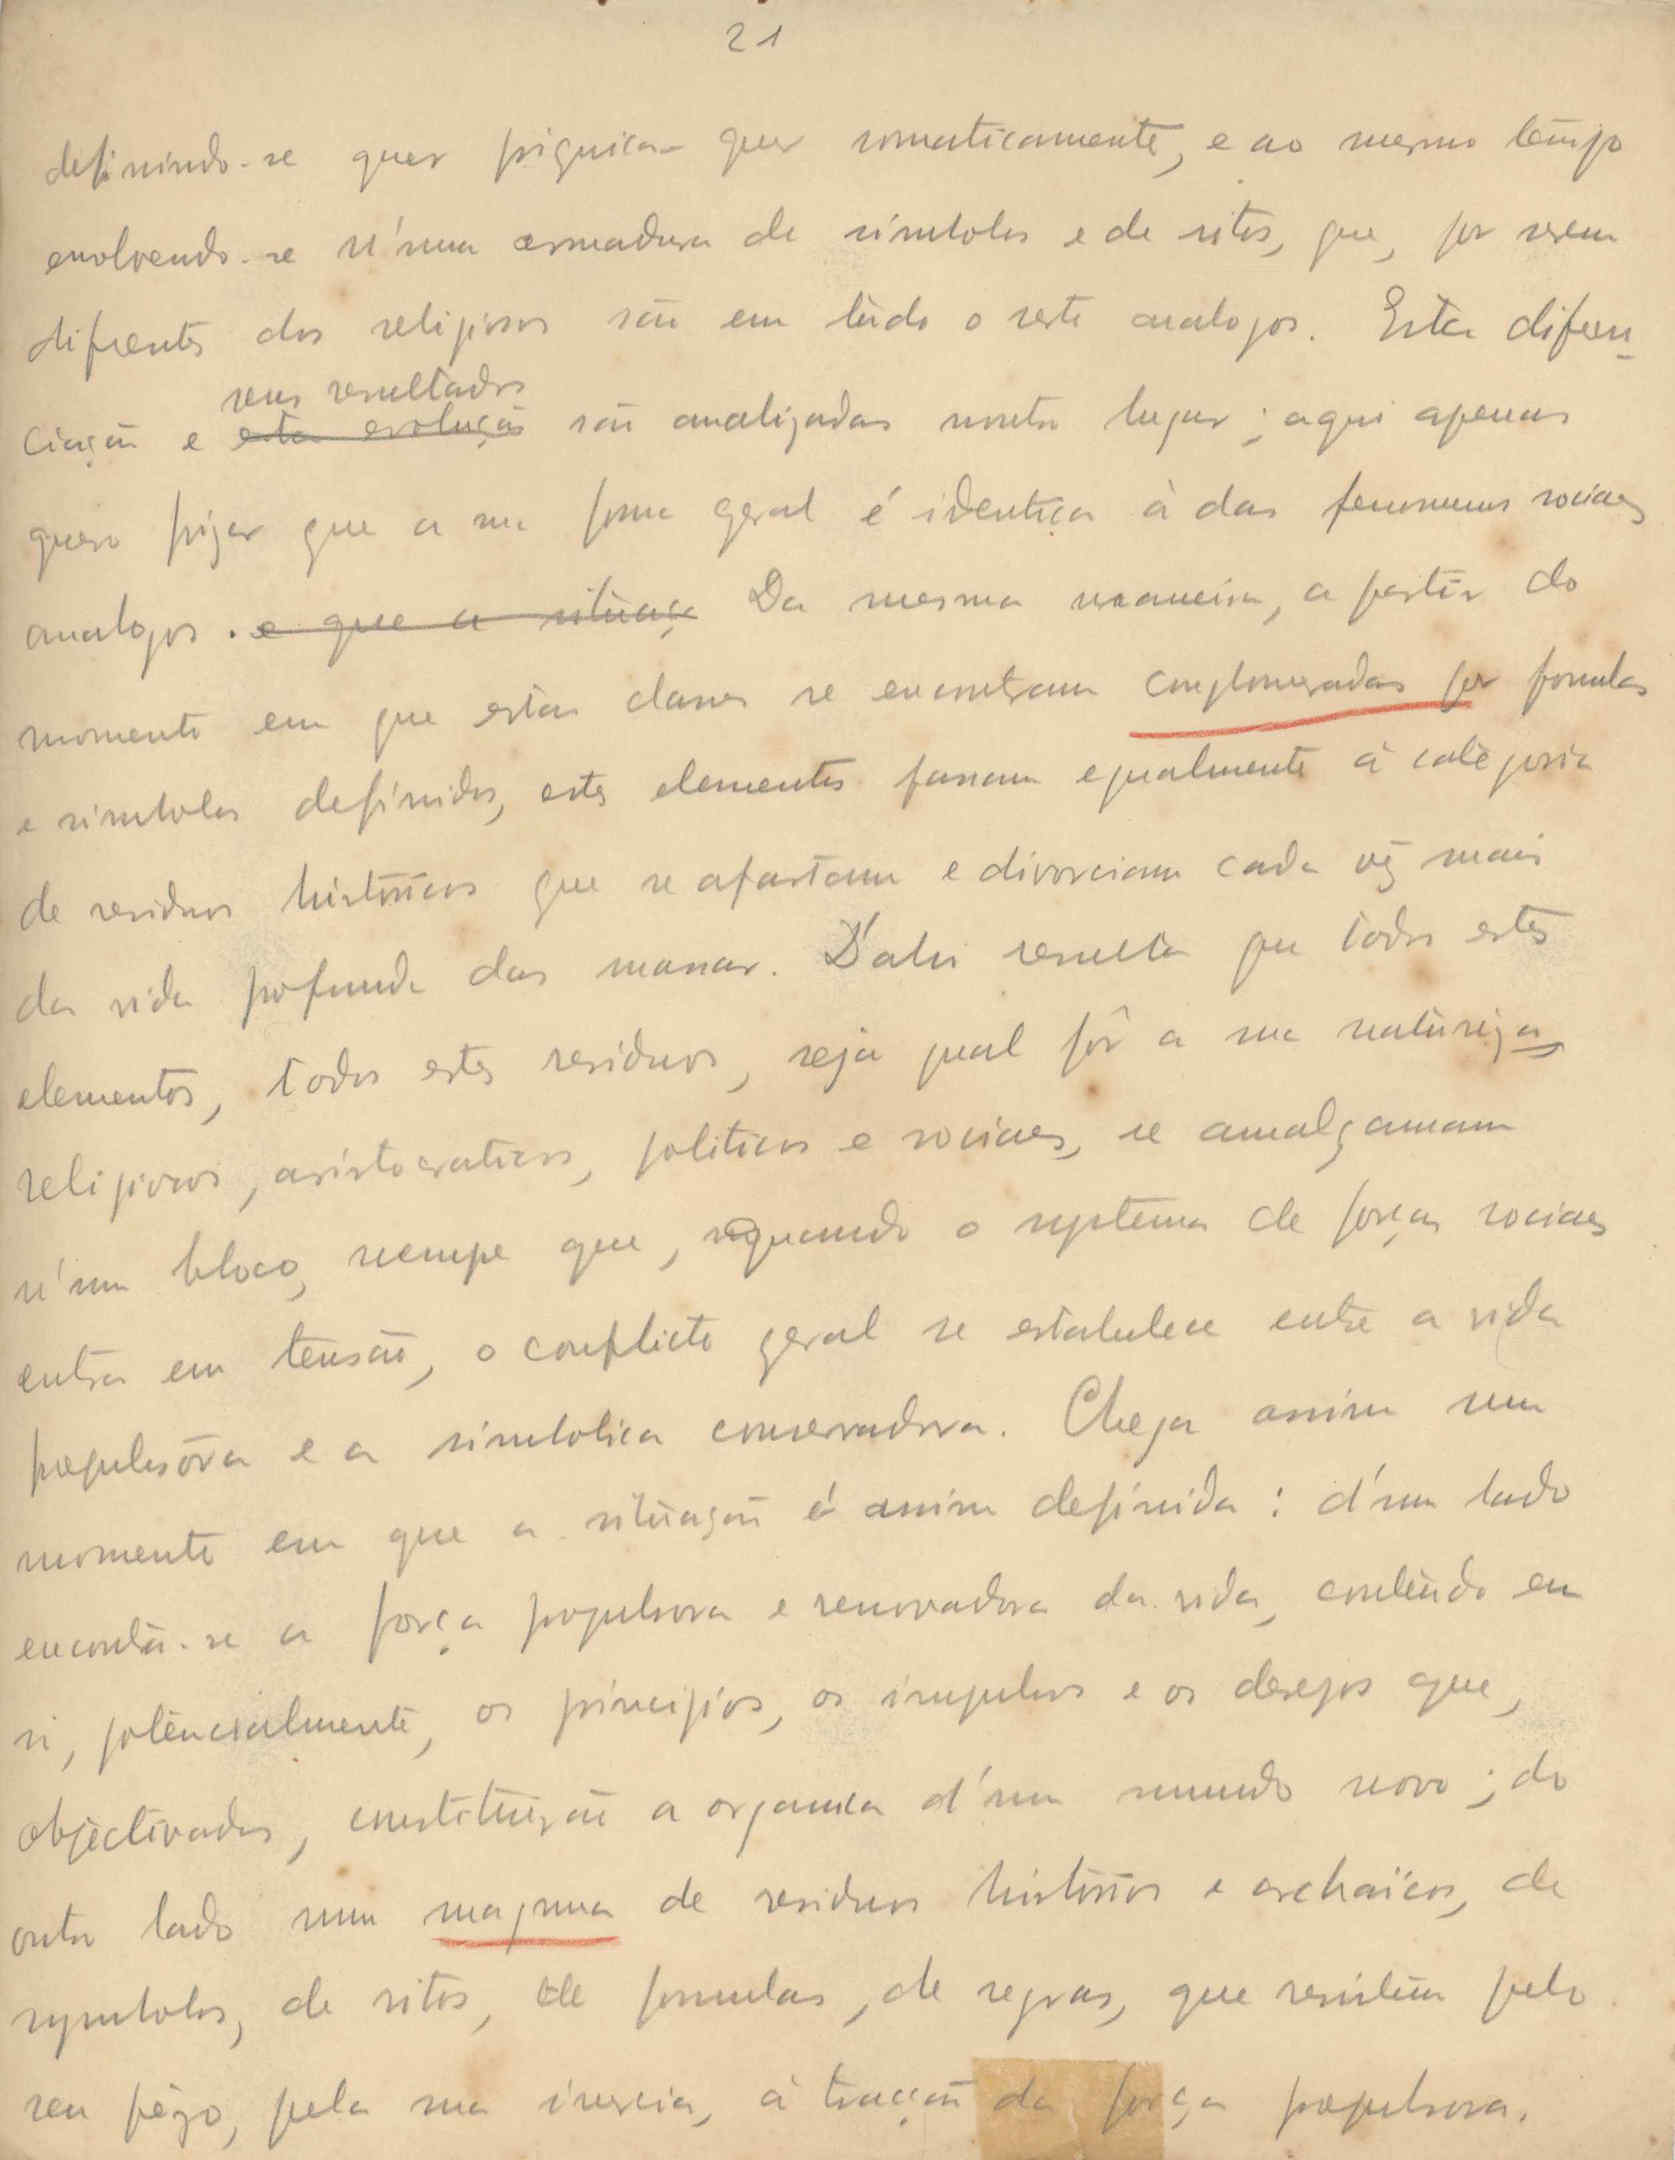 21
definindo-se quer psiquica- quer somaticamente, e ao mesmo tempo
envolvendo-se n'uma armadura de simbolos e de ritos, que, por serem
difrentes dos religiosos são em tudo o resto analogos. Esta difren-
seus resultados
ciação e esta evolução são analizadas noutro lugar; aqui apenas
quero frizar que a sua forma geral é identica à dos fenomenos sociaes
analogos. e que a situaçã Da mesma maneira, a partir do
momento em que estas classes se encontram conglomeradas por formulas
e simbolos definidos, estes elementos passam egualmente á categoria
de residuos históricos que se afastam e divorciam cada vez mais
da vida profunda das massas. D'ahi resulta que todos estes
elementos, todos estes residuos, seja qual fôr a sua naturêza,
religiosos, aristocraticos, politicos e sociaes, se amalgamam
n'um bloco, sempre que, quando o systema de forças sociaes
entra em tensão, o conflicto geral se estabelece entre a vida
propulsora e a simbolica conservadora. Chega assim um
momento em que a situação é assim definida: d'um lado
encontra-se a força propulsora e renovadora da vida, contendo em
si, potencialmente, os principios, os impulsos e os desejos que,
objectivados, constituirão a organica d'um mundo novo; do
outro lado um magma de residuos históricos e archaïcos, de
symbolos, de ritos, de formulas, de regras, que resistem pelo
seu pêzo, pela sua inercia, à tracção da força propulsora.